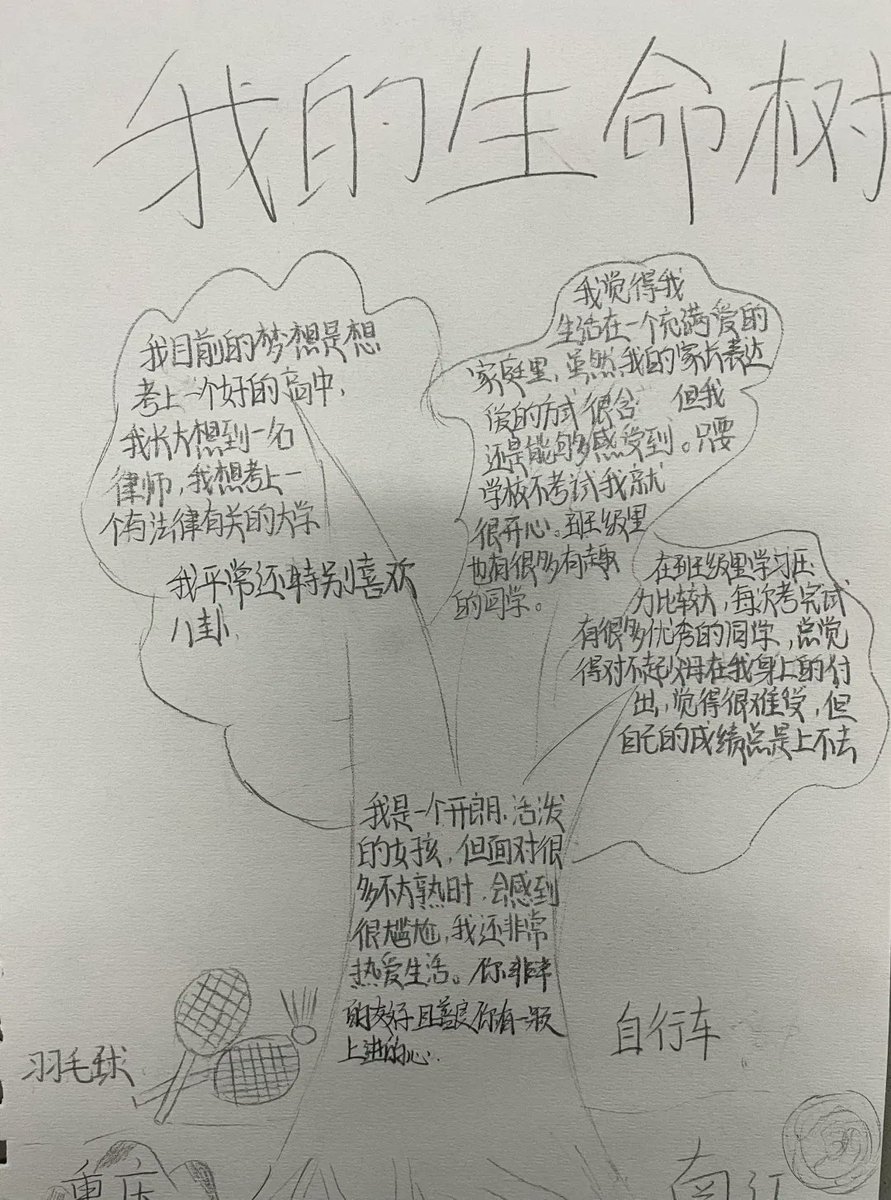 我的生命树
我目前的梦想是想
考上一个好的高中,
我长大想到一名
律师,我想考上一
个有法律有关的大学
我平常还特别喜欢
八卦.
我觉得我
生活在一个充满爱的
家庭里,虽然我的家长表达
爱的方式很含 但我
还是能够感受到。只要
学校不考试我就
很开心。班级里
也有很多有趣
的同学。
在班级里学习压
力比较大,每次考完试
有很多优秀的同学,总觉
得对不起父母在我身上的付
出,觉得很难受,但
自己的成绩总是上不去
我是一个开朗,活泼
的女孩,但面对很
多不太熟时,会感到
很尴尬,我还非常
热爱生活。你非常
的友好且善良你有一颗
上进的心.
羽毛球
自行车
重庆
南江